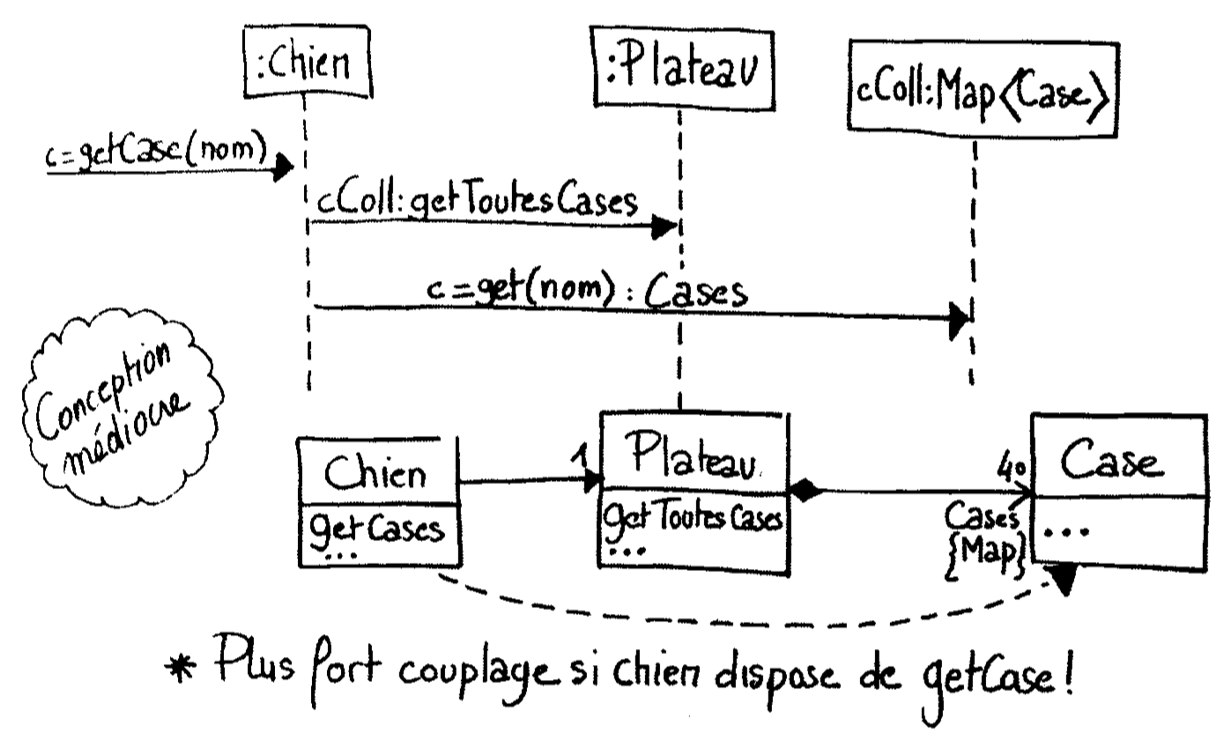 :Chien
:Plateau
cColl:Map<Case>
c=getCase(nom)
cColl:getToutesCases
c=get(nom): Cases
Conception
médiocre
Chien
getCases
...
1
Plateau
getToutesCases
...
40
Cases
{Map}
Case
...
* Plus fort couplage si chien dispose de getCase!